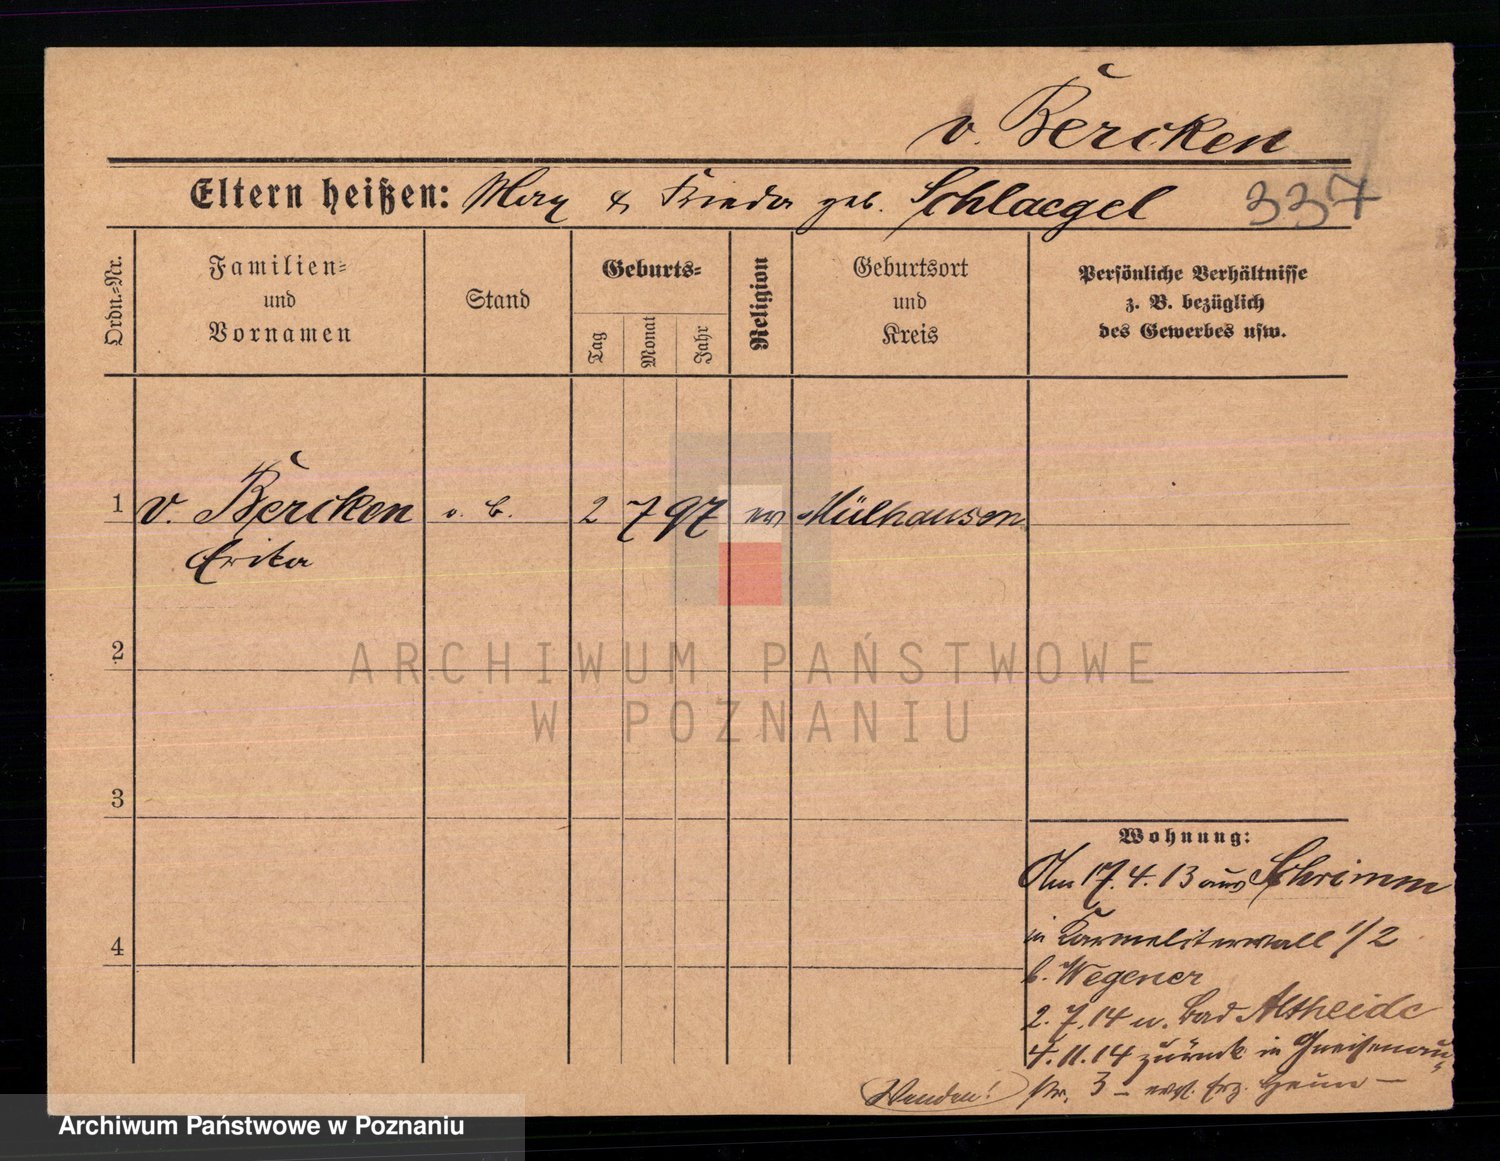 v. Bercken
Eltern heißen: Max & Frieda geb. Schlaegel 337
Ordn.-Nr.
Familien-
und
Vornamen
Stand
Geburts-
Tag
Monat
Jahr
Religion
Geburtsort
und
Kreis
Persönliche Verhältnisse
z. B. bezüglich
des Gewerbes usw.
1 v. Bercken o. B. 2 7 97 ev Mülhausen
Erika
2
ARCHIWUM PAŃSTWOWE
W POZNANIU
3
Wohnung:
Am 17.4.13 aus Schrimm
in Karmeliterwall 1/2
4
b. Wegener
2.7.14 n. Bad Altheide
4.11.14 zurück in Gneisenau-
str. 3 – Heim –
Wenden!
Archiwum Państwowe w Poznaniu